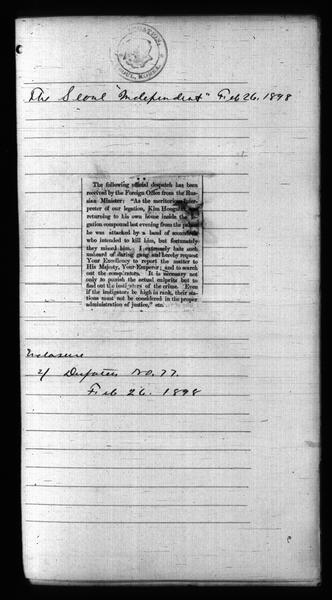 LEGATION
SEOUL, KOREA.
The Seoul "Independent" Feb 26, 1898
The following official despatch has been
received by the Foreign Office from the Rus-
sian Minister: "As the meritorious inter-
preter of our legation, Kim Hongniuk
returning to his own home inside the
gation compound last evening from the palace
he was attacked by a band of scoundrels
who intended to kill him, but fortunately
they missed him. I extremely hate such
unheard of daring gang and hereby request
Your Excellency to report the matter to
His Majesty, Your Emperor; and to search
out the conspirators. It is necessary not
only to punish the actual culprits but to
find out the instigators of the crime. Even
if the instigators be high in rank, their sta-
tions must not be considered in the proper
administration of justice," etc.
Inclosure
Dispatch No. 77.
Feb 26. 1898